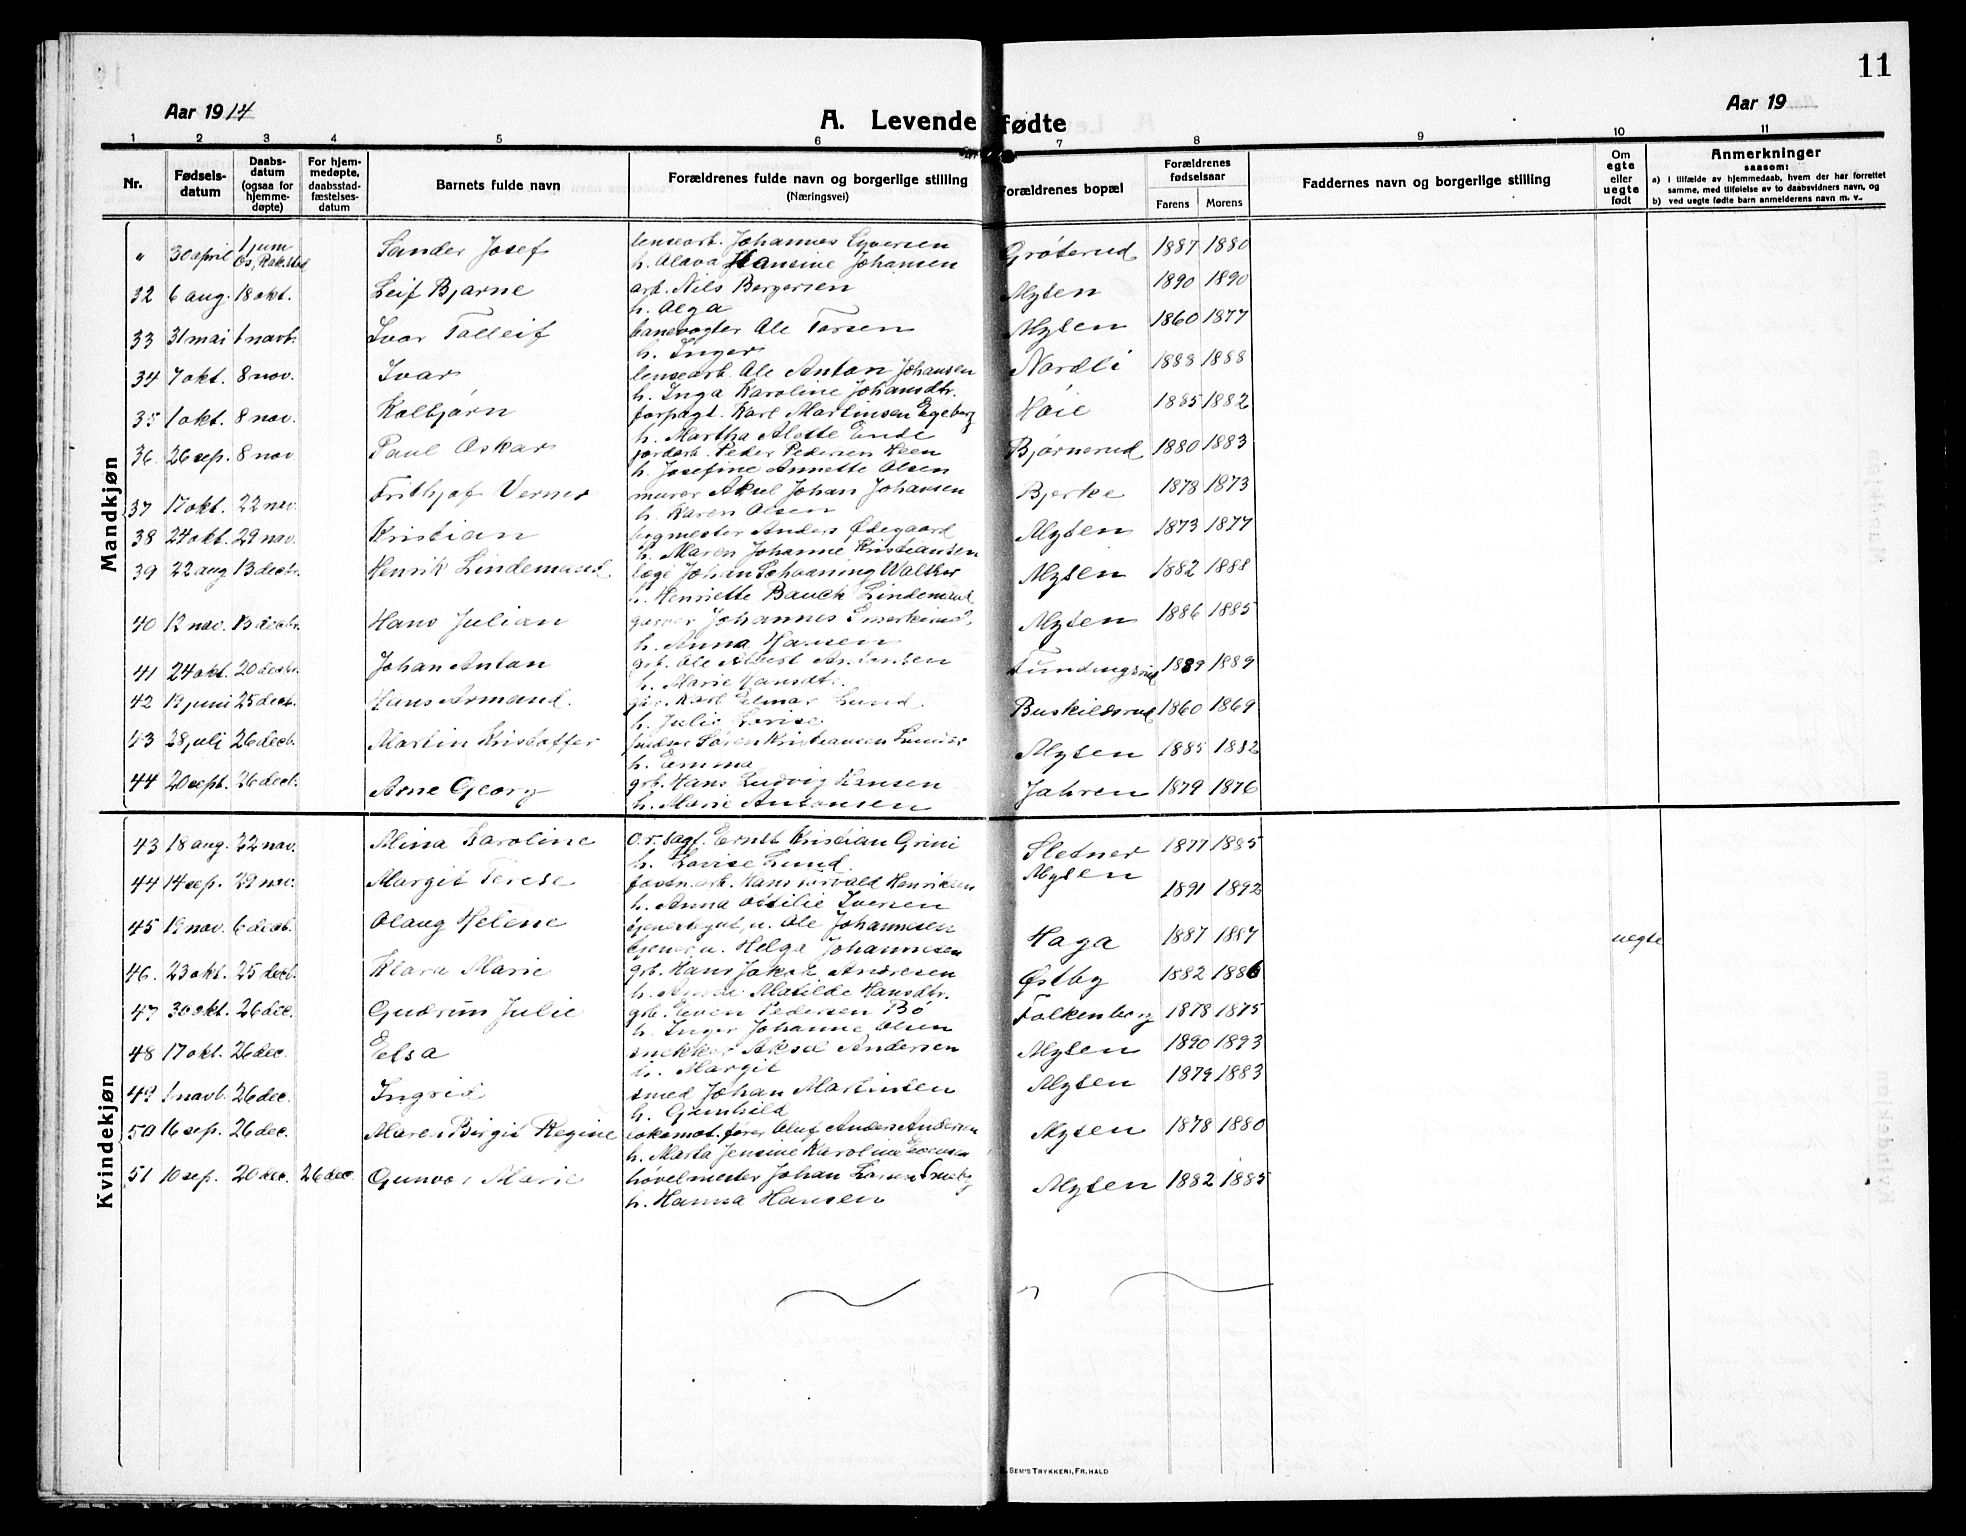 11
Aar 1914
A. Levende fødte
Aar 19
1 2 3 4 5 6 7 8 9 10 11
Nr.
Fødsels-datum
Daabs-datum (ogsaa for hjemme-døpte)
For hjem-medøpte, daabsstad-fæstelses-datum
Barnets fulde navn
Forældrenes fulde navn og borgerlige stilling
(Næringsvei)
Forældrenes bopæl
Forældrenes fødselsaar
Farens Morens
Faddernes navn og borgerlige stilling
Om egte eller uegte født
Anmerkninger
saasom:
a) i tilfælde av hjemmedaab, hvem der har forrettet samme, med tilføielse av to daabsvidners navn, og
b) ved uegte fødte barn anmelderens navn m. v..
Mandkjøn
" 30 april 1 juni Sander Josef lensearb. Johannes Syversen Grøterud 1887 1880
h. Olava Hansine Johansen
32 6 aug. 18 okt. Leif Bjarne arb. Nils Borgersen Mysen 1890 1890
h. Olga
33 31 mai 1 novb. Ivar Tolleif banevogter Ole Torsen Mysen 1860 1877
h. Inger
34 7 okt. 8 nov. Ivar lensearb. Ole Anton Johansen Nordli 1888 1888
h. Inga Karoline Johansdtr.
35 1 okt. 8 nov. Kolbjørn forpagt. Karl Martinsen Egeberg Høie 1885 1882
h. Martha Alette Ende
36. 26 sep. 8 nov Paul Oskar jordarb. Peder Pedersen Heen Bjørnerud 1880 1883
h. Josefine Annette Olsen
37 17 okt. 22 nov. Frithjof Verner murer Aksel Johan Johansen Bjerke 1878 1873
h. Karen Olsen
38 24 okt. 29 nov. Kristian Anders Ødegaard Mysen 1873 1877
h. Maren Johanne Kristiansen
39 22 aug 13 decbr. Henrik Lindemand læge Johan Schaaning Walther Mysen 1882 1888
h. Henriette Bauck Lindemand
40 12 nov. 13 decbr. Hans Julian garver Johannes Smerkerud, Mysen 1886 1885
h. Anna Hansen
41 24 okt. 20 decbr. Johan Anton grb. Ole Albert Antonsen 1889 1889
h. Marie Hansdtr.
42 19 juni 25 decb. Hans Armand. gár. Karl Elmar Lund. Buskilsrud 1860 1869
h. Julie Lovise
43 28 juli 26 decb. Martin Kristoffer Søren Kristiansen Mysen 1885 1882
h. Emma
44 20 sept. 26 decb. Arne Georg grb. Hans Ludvig Hansen Jahren 1879 1876
h. Marie Antonsen
Kvindekjøn
43 18 aug. 22 nov. Mina Karoline o.r.sagf. Ernst Kristian Grini Sletner 1877 1885
h. Lovise Lund.
44 14 sep. 29 nov. Margit Terese Hans Torvald Henriksen Mysen 1891 1892
h. Anna Otilie Iversen
45 19 nov. 6 decb. Olaug Helene Ole Johannesen Haga 1887 1887 uegte
Helga Johannesen
46. 23 okt. 25 decb. Klara Marie grb. Hans Jakob Andresen Østby 1882 1886
h. Anna Matilde Hansdtr.
47 30 okt. 26 dec. Gudrun Julie grb. Even Pedersen Bø Falkenberg 1878 1875
h. Inger Johanne Olsen
48 17 okt. 26 dec. Elsa snekker Aksel Andersen Mysen 1890 1893
h. Margit
49 1 novb. 26 dec. Ingrid smed Johan Martinsen Mysen 1879 1883
h. Gunhild
50 16 sep. 26 dec. Maren Birgit Regine lokomot.fører Oluf Anders Andersen Mysen 1878 1880
h. Marta Jensine Karoline Evensen
51 10 sep. 20 dec. 26 dec. Gunvor Marie høvelmester Johan Larsen Mysen 1882 1885
h. Hanna Hansen
SEM'S TRYKKERI, FR. HALD